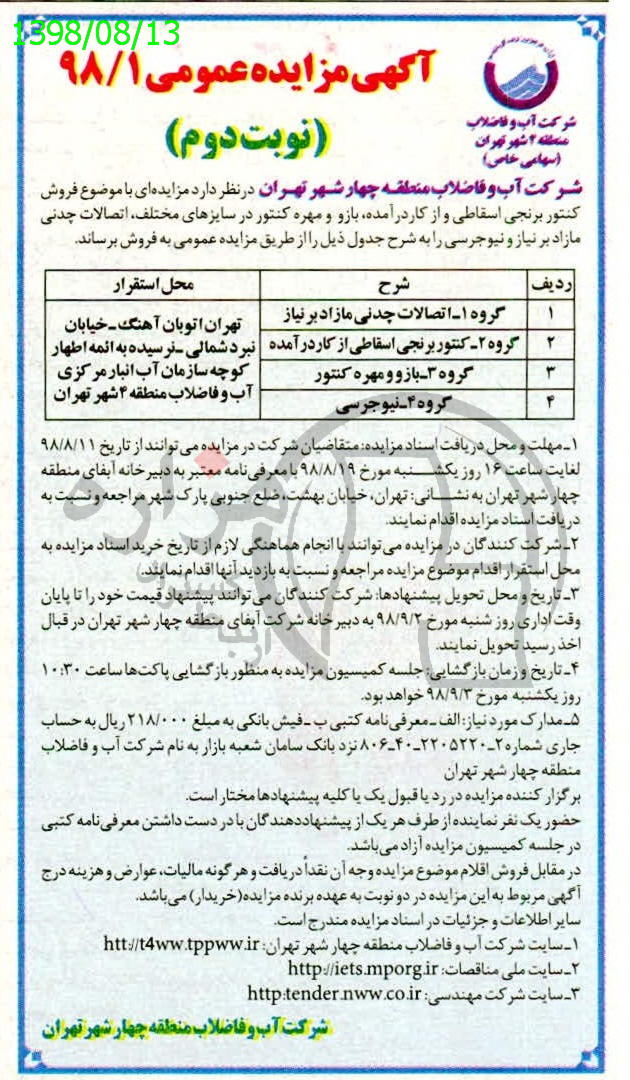 1398/08/13
آگهی مزایده عمومی ۹۸/۱
(نوبت دوم)
شرکت آب و فاضلاب
منطقه ۴ شهر تهران
(سهامی خاص)
شرکت آب و فاضلاب منطقه چهار شهر تهران درنظر دارد مزایده‌ای با موضوع فروش
کنتور برنجی اسقاطی و از کار درآمده، بازو و مهره کنتور در سایزهای مختلف، اتصالات چدنی
مازاد بر نیاز و نیوجرسی را به شرح جدول ذیل را از طریق مزایده عمومی به فروش برساند.
ردیف شرح محل استقرار
۱ گروه ۱ـ اتصالات چدنی مازاد بر نیاز
۲ گروه ۲ـ کنتور برنجی اسقاطی از کار درآمده
۳ گروه ۳ـ بازو و مهره کنتور
۴ گروه ۴ـ نیوجرسی
تهران اتوبان آهنگ ـ خیابان
نبرد شمالی ـ نرسیده به ائمه اطهار
کوچه سازمان آب انبار مرکزی
آب و فاضلاب منطقه ۴ شهر تهران
۱ـ مهلت و محل دریافت اسناد مزایده: متقاضیان شرکت در مزایده می‌توانند از تاریخ ۹۸/۸/۱۱
لغایت ساعت ۱۶ روز یکشنبه مورخ ۹۸/۸/۱۹ با معرفی‌نامه معتبر به دبیرخانه آبفای منطقه
چهار شهر تهران به نشانی: تهران، خیابان بهشت، ضلع جنوبی پارک شهر مراجعه و نسبت به
دریافت اسناد مزایده اقدام نمایند.
۲ـ شرکت کنندگان در مزایده می‌توانند با انجام هماهنگی لازم از تاریخ خرید اسناد مزایده به
محل استقرار اقدام موضوع مزایده مراجعه و نسبت به بازدید آنها اقدام نمایند.
۳ـ تاریخ و محل تحویل پیشنهادها: شرکت کنندگان می‌توانند پیشنهاد قیمت خود را تا پایان
وقت اداری روز شنبه مورخ ۹۸/۹/۲ به دبیرخانه شرکت آبفای منطقه چهار شهر تهران در قبال
اخذ رسید تحویل نمایند.
۴ـ تاریخ و زمان بازگشایی: جلسه کمیسیون مزایده به منظور بازگشایی پاکت‌ها ساعت ۱۰:۳۰
روز یکشنبه مورخ ۹۸/۹/۳ خواهد بود.
۵ـ مدارک مورد نیاز: الف ـ معرفی‌نامه کتبی ب ـ فیش بانکی به مبلغ ۲۱۸/۰۰۰ ریال به حساب
جاری شماره ۲ـ۲۲۰۵۲۲۰ـ۴۰ـ۸۰۶ نزد بانک سامان شعبه بازار به نام شرکت آب و فاضلاب
منطقه چهار شهر تهران
برگزار کننده مزایده در رد یا قبول یک یا کلیه پیشنهادها مختار است.
حضور یک نفر نماینده از طرف هر یک از پیشنهاددهندگان با در دست داشتن معرفی‌نامه کتبی
در جلسه کمیسیون مزایده آزاد می‌باشد.
در مقابل فروش اقلام موضوع مزایده وجه آن نقداً دریافت و هرگونه مالیات، عوارض و هزینه درج
آگهی مربوط به این مزایده در دو نوبت به عهده برنده مزایده (خریدار) می‌باشد.
سایر اطلاعات و جزئیات در اسناد مزایده مندرج است.
۱ـ سایت شرکت آب و فاضلاب منطقه چهار شهر تهران: htt://t4ww.tppww.ir
۲ـ سایت ملی مناقصات: http://iets.mporg.ir
۳ـ سایت شرکت مهندسی: http:tender.nww.co.ir
شرکت آب و فاضلاب منطقه چهار شهر تهران